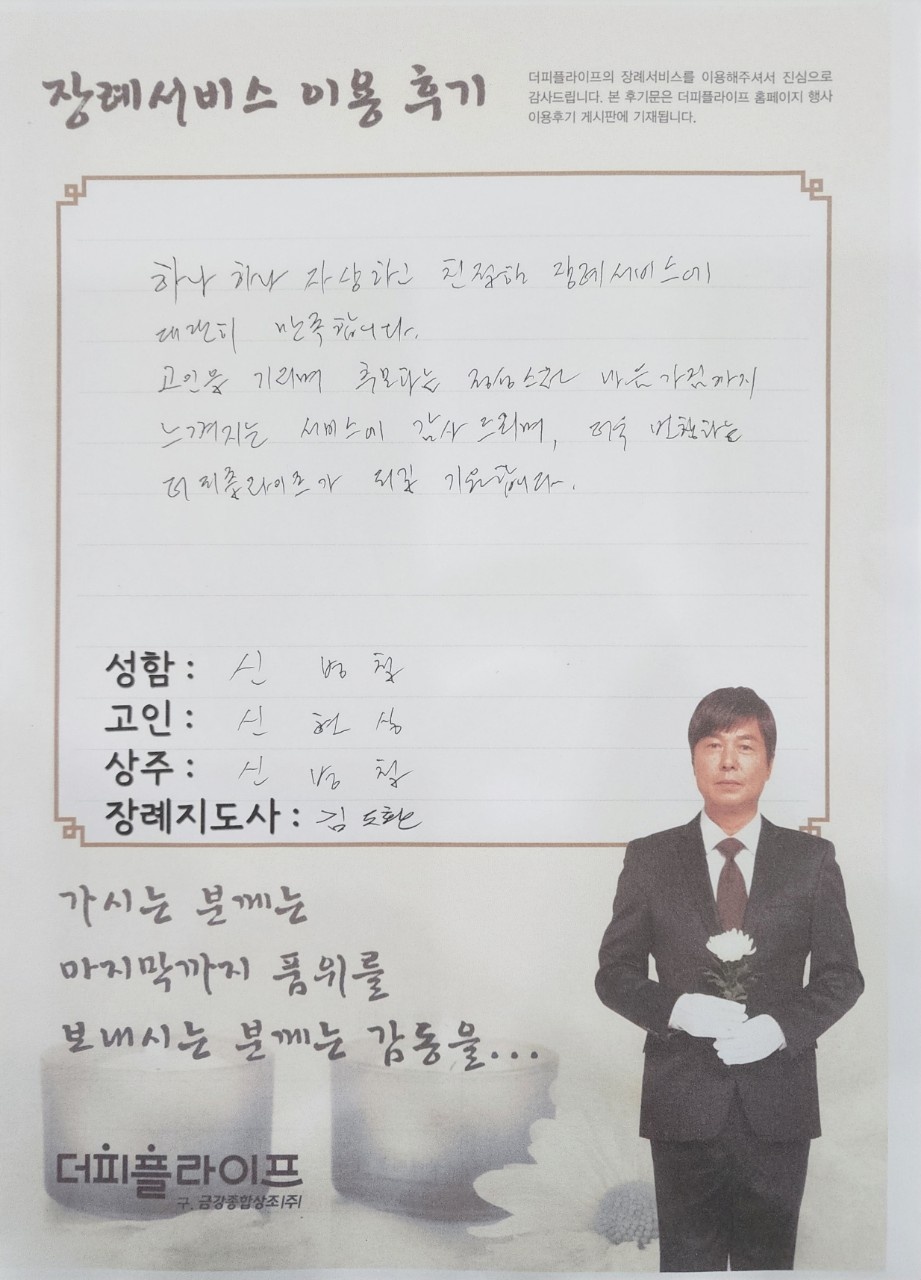 장례서비스 이용 후기
더피플라이프의 장례서비스를 이용해주셔서 진심으로
감사드립니다. 본 후기문은 더피플라이프 홈페이지 행사
이용후기 게시판에 기재됩니다.
하나 하나 자상하고 친절한 장례서비스에
대단히 만족합니다.
고인을 기리며 추모하는 정성스런 마음가짐까지
느껴지는 서비스에 감사드리며, 더욱 번창하는
더피플라이프가 되길 기원합니다.
성함 : 신 병 철
고인 : 신 현 상
상주 : 신 병 철
장례지도사 : 김도환
가시는 분께는
마지막까지 품위를
보내시는 분께는 감동을...
더피플라이프
구. 금강종합상조(주)